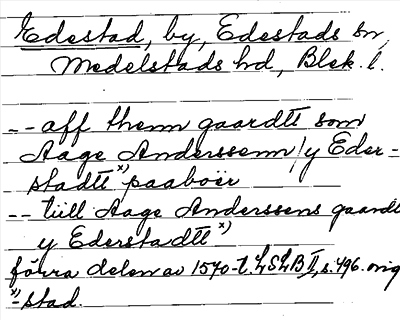 Edestad, by, Edestads sn,
Medelstads hd, Blek. l.
-- aff thenn gaardtt som
Aage Anderssenn / y Eder-
stadtt x) paaboër
-- tiill Aage Anderssens gaardt
y Ederstadtt x)
förra delen av 1570-t. LSLB II, s. 496. orig
x) -stad.